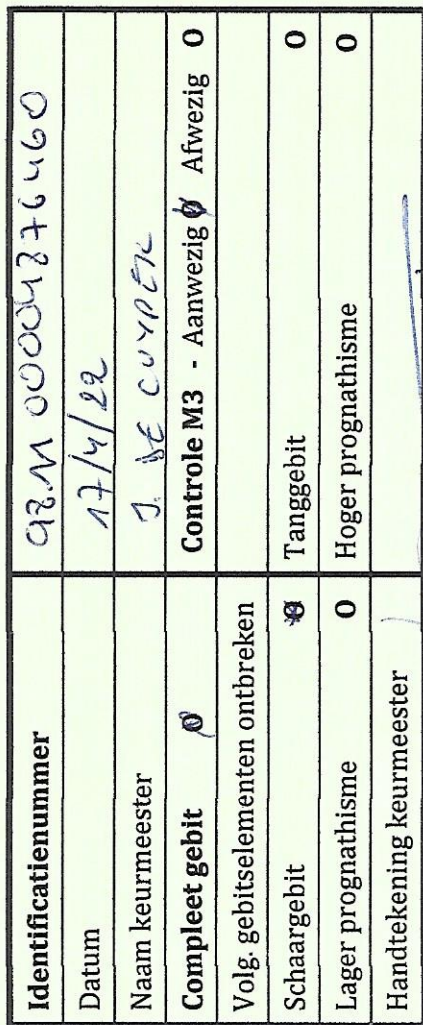 Identificatienummer 98.11 00004876460
Datum 17/4/22
Naam keurmeester J. DE CUYPER
Compleet gebit O Controle M3 - Aanwezig O Afwezig O
Volg. gebitselementen ontbreken
Schaargebit O Tanggebit O
Lager prognathisme O Hoger prognathisme O
Handtekening keurmeester